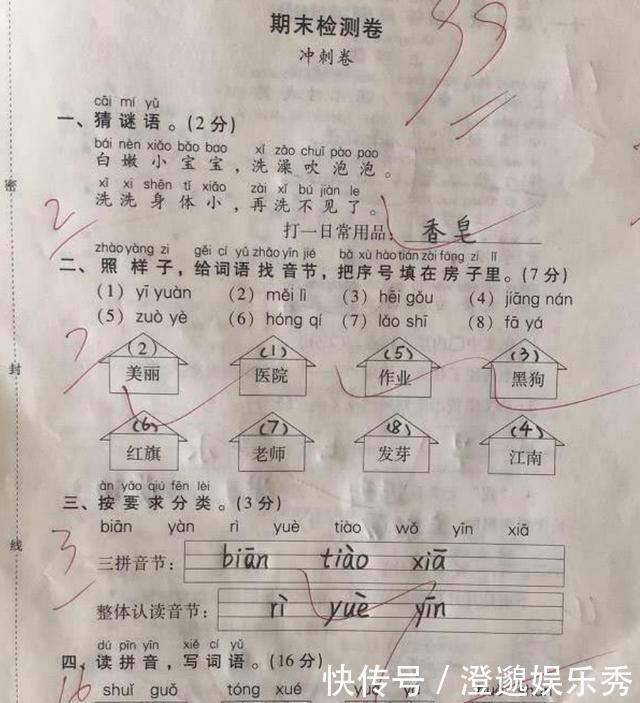 期末检测卷
99
冲刺卷
cāi mí yǔ
一、猜谜语。(2分)
bái nèn xiǎo bǎo bao xǐ zǎo chuī pào pao
白嫩小宝宝,洗澡吹泡泡。
xǐ xi shēn tǐ xiǎo zài xǐ bú jiàn le
洗洗身体小,再洗不见了。
2
打一日常用品:香皂
zhào yàng zi gěi cí yǔ zhǎo yīn jié bǎ xù hào tián zài fáng zi lǐ
二、照样子,给词语找音节,把序号填在房子里。(7分)
(1) yī yuàn (2) měi lì (3) hēi gǒu (4) jiāng nán
(5) zuò yè (6) hóng qí (7) lǎo shī (8) fā yá
7
(2) (1) (5) (3)
美丽 医院 作业 黑狗
(6) (7) (8) (4)
红旗 老师 发芽 江南
àn yāo qiú fēn lèi
三、按要求分类。(3分)
biān yàn rì yuè tiào wǒ yīn xiā
3
三拼音节: biān tiào xiā
整体认读音节: rì yuè yīn
dú pīn yīn xiě cí yǔ
四、读拼音,写词语。(16分)
16
shuǐ guǒ tóng xué
密
封
线
快传号/澄邈娱乐秀